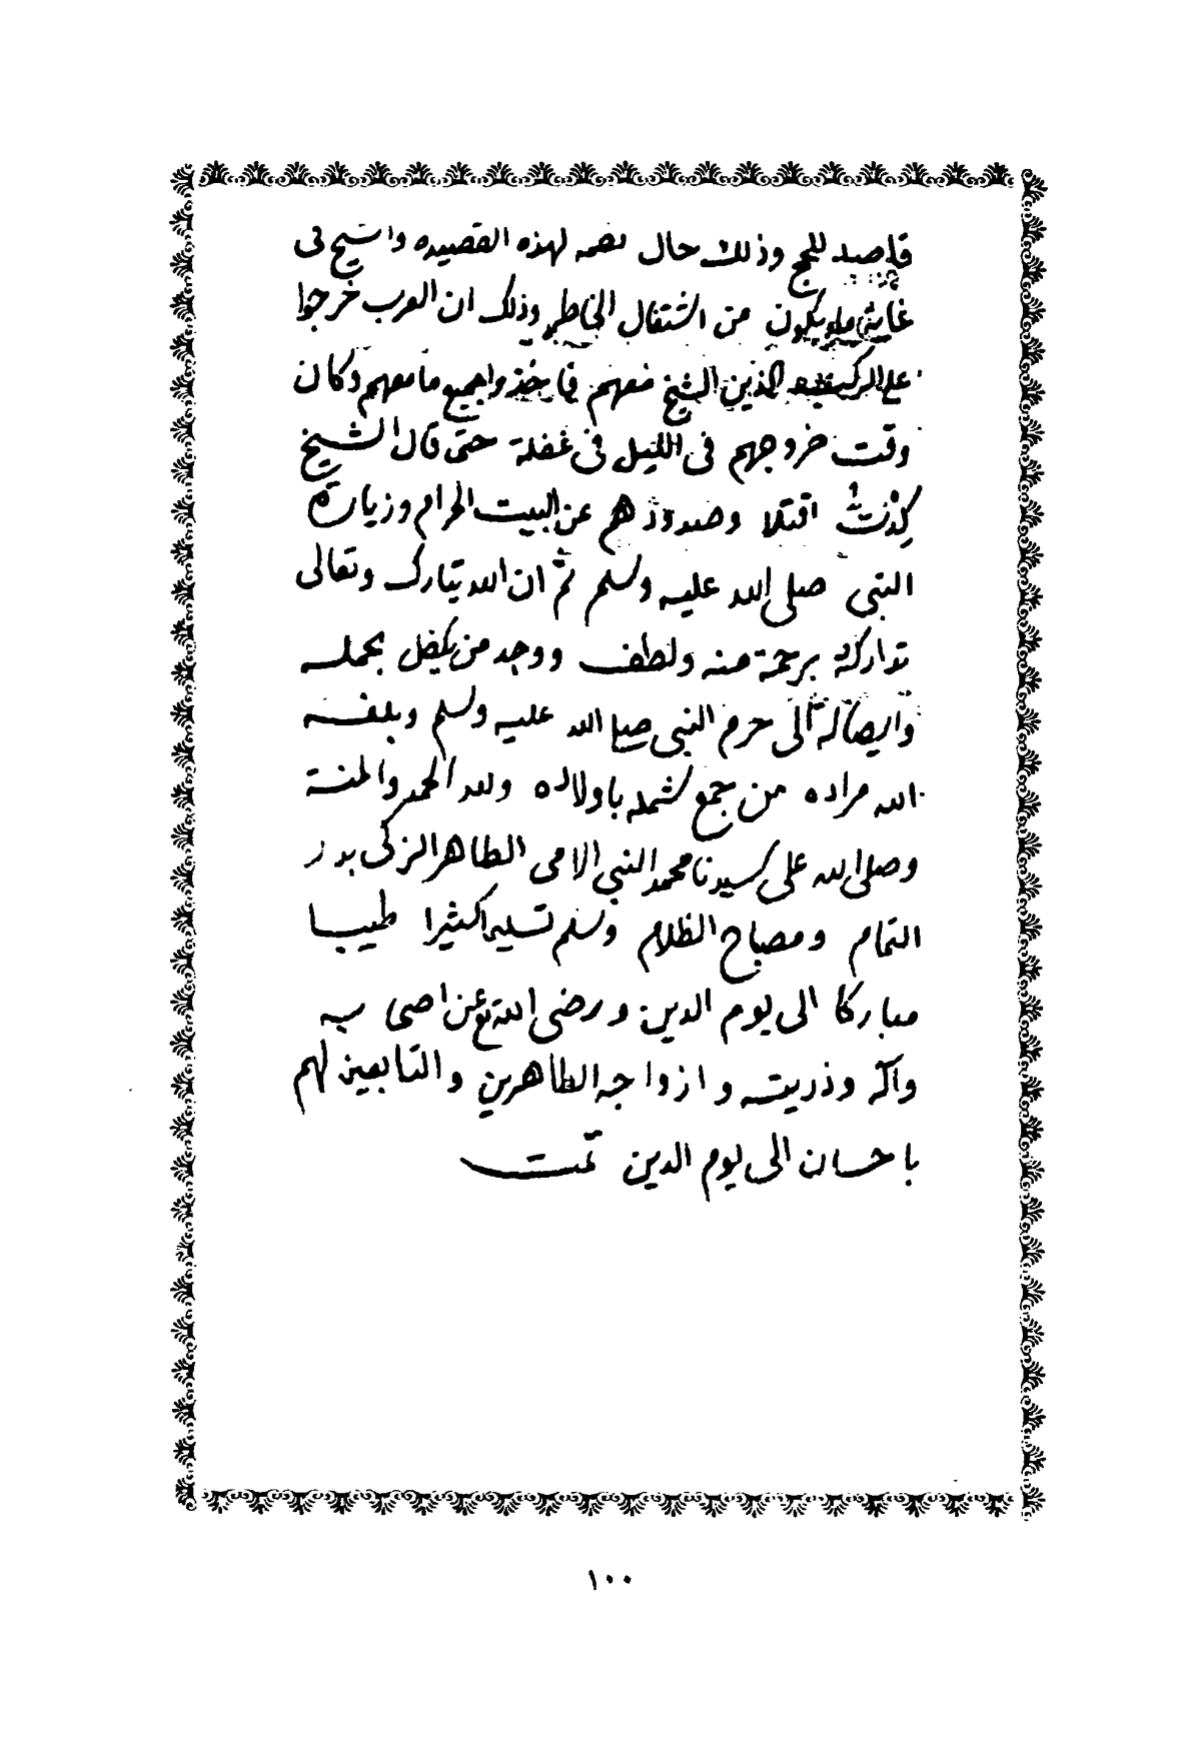 قاصد للحج وذلك حال نظمه لهذه القصيده والشيخ فى
غاية ما يكون من اشتغال الخاطر وذلك ان العرب خرجوا
على الركب الذين الشيخ معهم فاخذوا جميع ما معهم وكان
وقت خروجهم فى الليل فى غفلة حتى قال الشيخ
كدت اقتلا وصدوهم عن البيت الحرام وزيارة
النبى صلى الله عليه وسلم ثم ان الله تبارك وتعالى
تداركه برحمة منه ولطف ووجد من يكفل بحمله
وايصاله الى حرم النبى صلى الله عليه وسلم وبلغه
الله مراده من جمع شمله باولاده ولله الحمد والمنة
وصلى الله على سيدنا محمد النبى الامى الطاهر الزكى بدر
التمام ومصباح الظلام وسلم تسليما كثيرا طيبا
مباركا الى يوم الدين ورضى الله تع عن اصحابه
وآله وذريته وازواجه الطاهرين والتابعين لهم
باحسان الى يوم الدين تمت
١٠٠